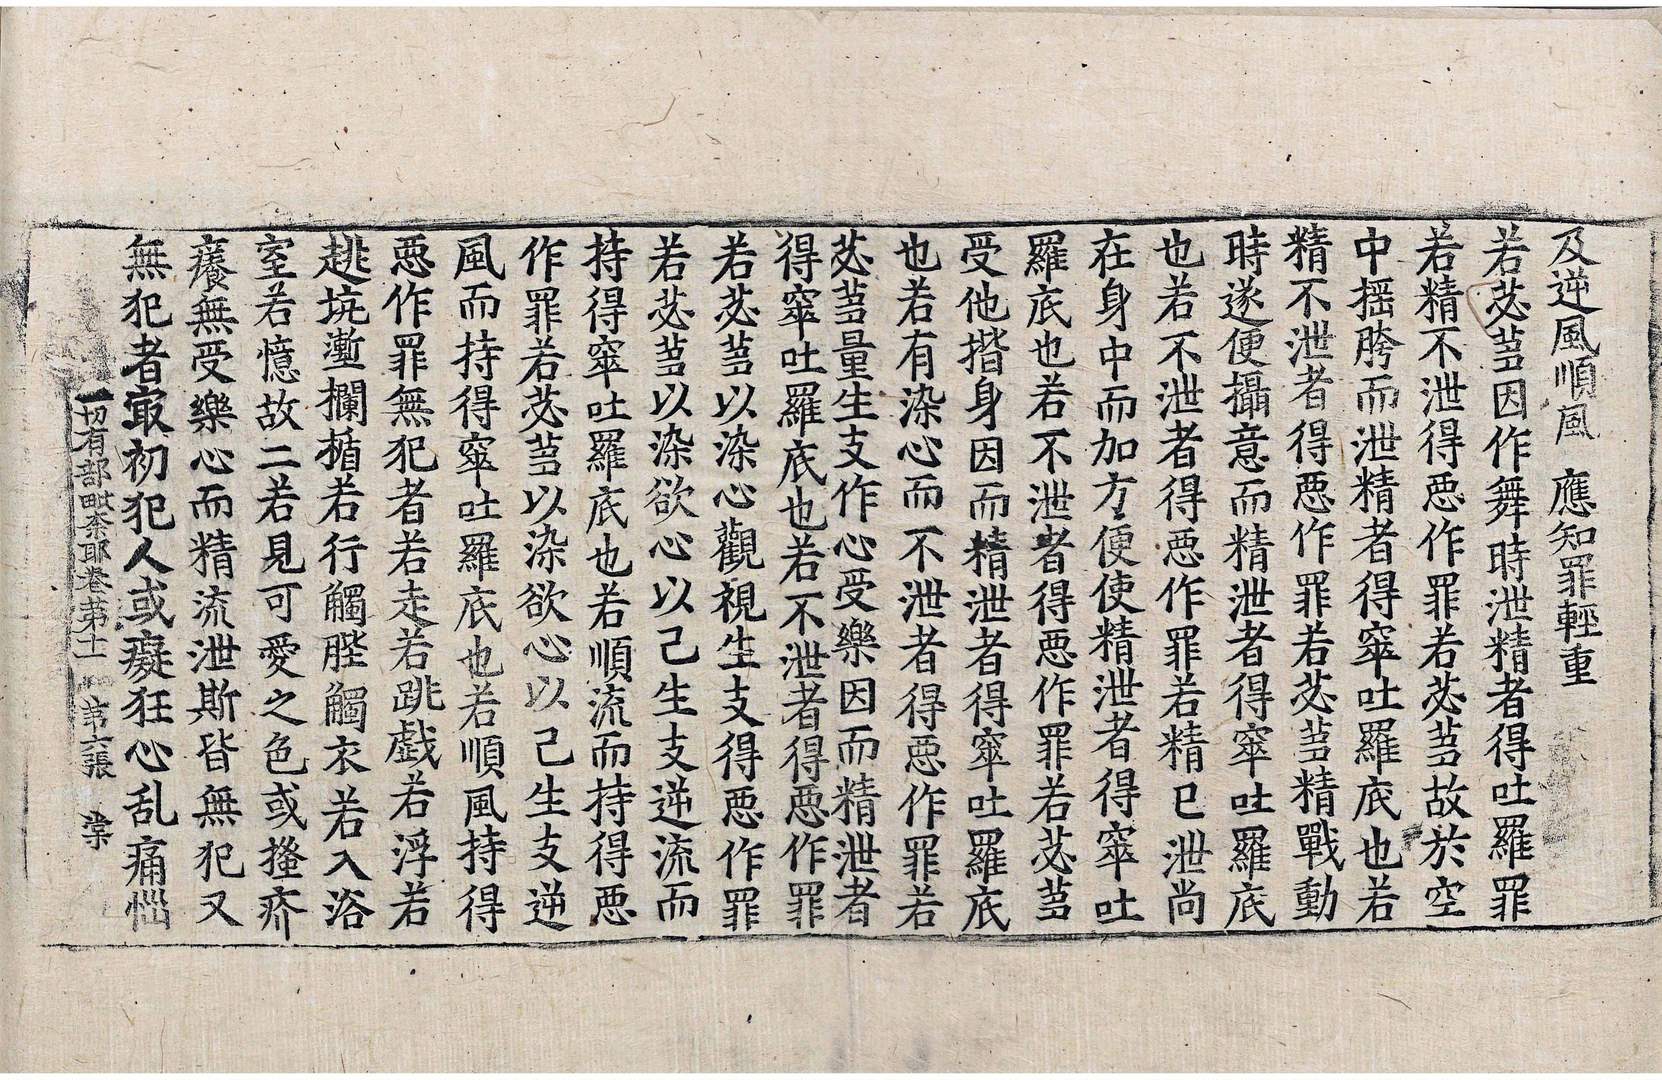 及逆風順風　應知罪輕重
若苾蒭因作舞時泄精者得吐羅罪
若精不泄得惡作罪若苾蒭故於空
中揺胯而泄精者得窣吐羅底也若
精不泄者得惡作罪若苾蒭精戰動
時遂便攝意而精泄者得窣吐羅底
也若不泄者得惡作罪若精已泄尚
在身中而加方便使精泄者得窣吐
羅底也若不泄者得惡作罪若苾蒭
受他揩身因而精泄者得窣吐羅底
也若有染心而不泄者得惡作罪若
苾蒭量生支作心受樂因而精泄者
得窣吐羅底也若不泄者得惡作罪
若苾蒭以染心觀視生支得惡作罪
若苾蒭以染欲心以己生支逆流而
持得窣吐羅底也若順流而持得惡
作罪若苾蒭以染欲心以己生支逆
風而持得窣吐羅底也若順風持得
惡作罪無犯者若走若跳戲若浮若
趒坑塹欄楯若行觸髀觸衣若入浴
室若憶故二若見可愛之色或搔疥
癢無受樂心而精流泄斯皆無犯又
無犯者㝡初犯人或癡狂心乱痛惱
一切有部毗奈耶卷第十一　第六張　棠